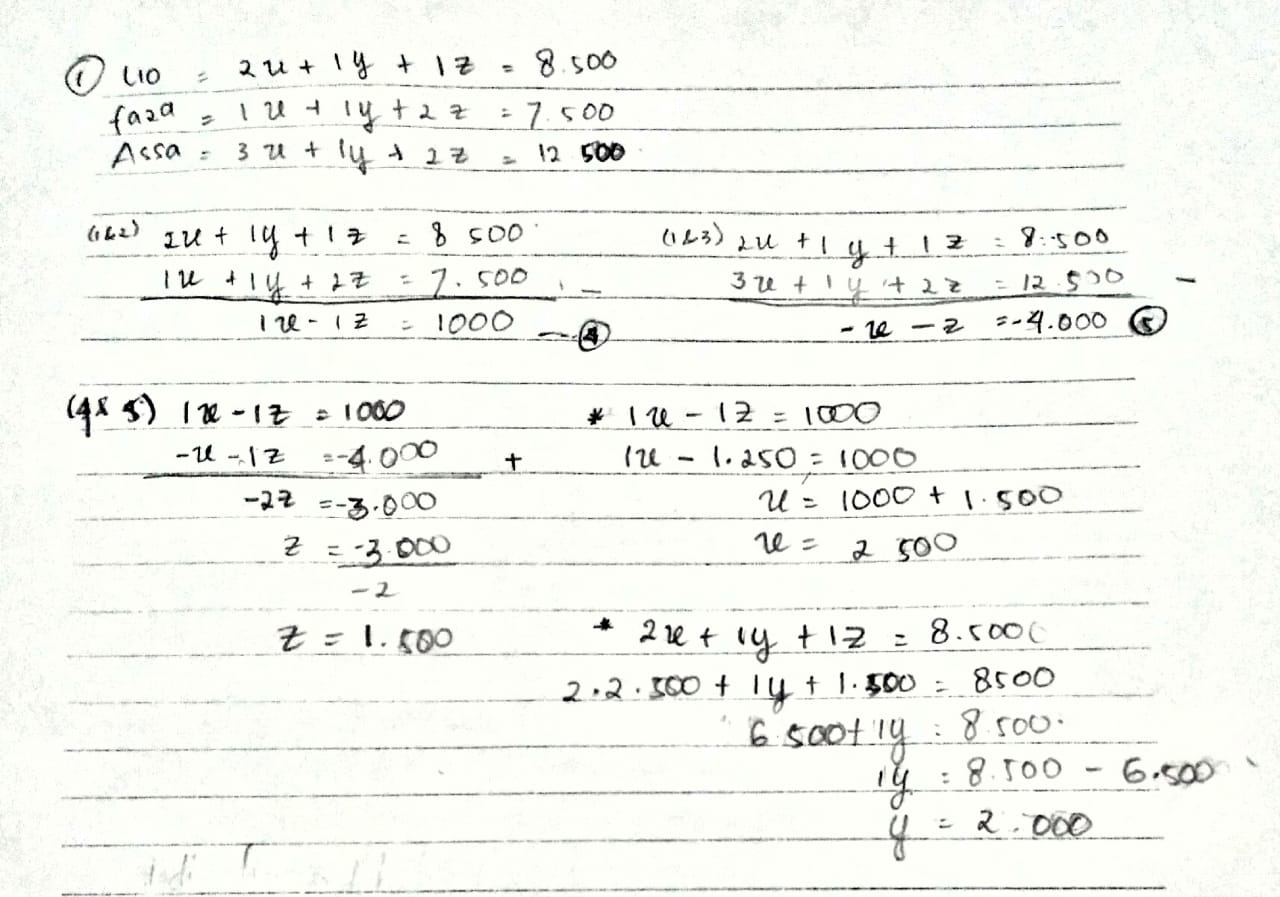 ① Lio = 2x + 1y + 1z = 8.500
faza = 1x + 1y + 2z = 7.500
Assa = 3x + 1y + 2z = 12 500
(1&2) 2x + 1y + 1z = 8 500
1x + 1y + 2z = 7.500 -
1x - 1z = 1000 — ④
(1&3) 2x + 1y + 1z = 8.500
3x + 1y + 2z = 12.500 -
-x - z = -4.000 ⑤
(4& 5) 1x - 1z = 1000
-x - 1z = -4.000 +
-2z = -3.000
z = -3.000
-2
z = 1.500
* 1x - 1z = 1000
1x - 1.250 = 1000
x = 1000 + 1.500
x = 2 500
* 2x + 1y + 1z = 8.500
2.2.500 + 1y + 1.500 = 8500
6.500 + 1y = 8.500
1y = 8.500 - 6.500
y = 2.000